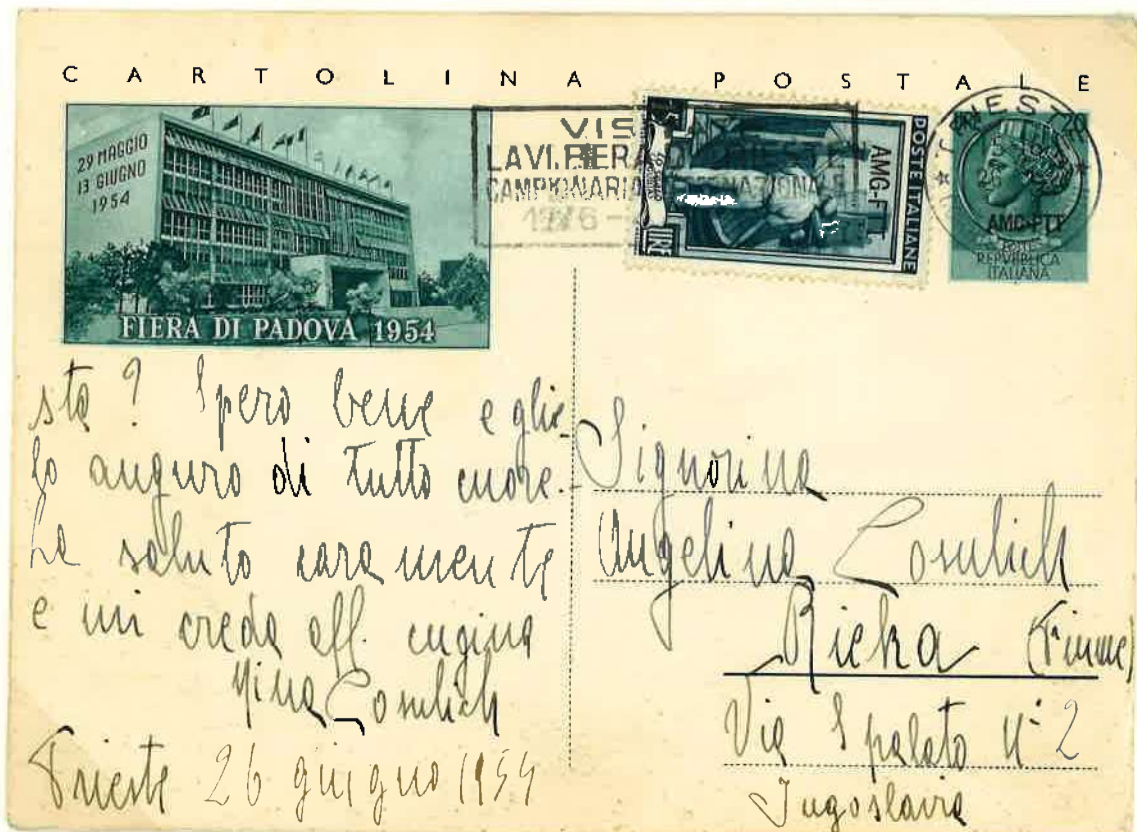 CARTOLINA POSTALE
29 MAGGIO
13 GIUGNO
1954
FIERA DI PADOVA 1954
VIS
LA VI. FIERA
CAMPIONARIA
POSTE ITALIANE
AMG-FTT
LIRE
AMG-FTT
POSTE
REPVBBLICA
ITALIANA
sta? Spero bene e glie-
lo auguro di tutto cuore.-
La saluto caramente
e mi creda aff. cugina
Nina Cosulich
Trieste 26 giugno 1954
Signorina
Angelina Cosulich
Rieka (Fiume)
Via Spalato N° 2
Jugoslavia